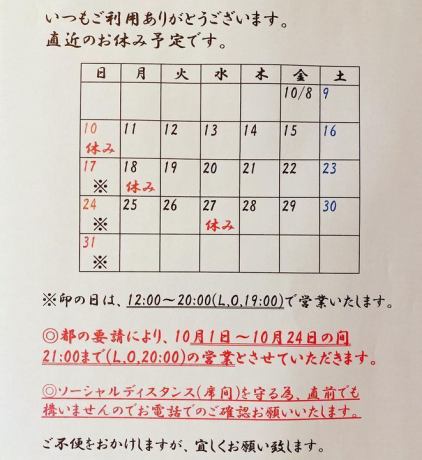 いつもご利用ありがとうございます。
直近のお休み予定です。
日 月 火 水 木 金 土
10/8 9
10 11 12 13 14 15 16
休み
17 18 19 20 21 22 23
※ 休み
24 25 26 27 28 29 30
※ 休み
31
※
※印の日は、12:00~20:00(L,O,19:00)で営業いたします。
◎都の要請により、10月1日~10月24日の間
21:00まで(L,O,20:00)の営業とさせていただきます。
◎ソーシャルディスタンス(席間)を守る為、直前でも
構いませんのでお電話でのご確認お願いいたします。
ご不便をおかけしますが、宜しくお願い致します。